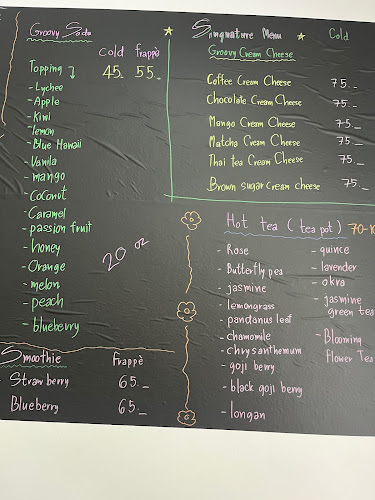 Groovy Soda
Cold Frappè
Topping 45.- 55.-
- Lychee
- Apple
- Kiwi
- lemon
- Blue Hawaii
- Vanila
- mango
- Coconut
- Caramel
- passion fruit
- honey
- Orange
- melon
- peach
- blueberry
20 oz
Smoothie Frappè
- Strawberry 65.-
Blueberry 65.-
Singnature Menu Cold
Groovy Cream Cheese
Coffee Cream Cheese 75.-
Chocolate Cream Cheese 75.-
Mango Cream Cheese 75.-
Matcha Cream Cheese 75.-
Thai tea Cream Cheese 75.-
Brown sugar Cream cheese 75.-
Hot tea ( tea pot )
- Rose
- Butterfly pea
- jasmine
- lemongrass
- pandanus leaf
- chamomile
- chrysanthemum
- goji berry
- black goji berry
- longan
- quince
- lavender
- okra
- jasmine
green tea
- Blooming
Flower Tea